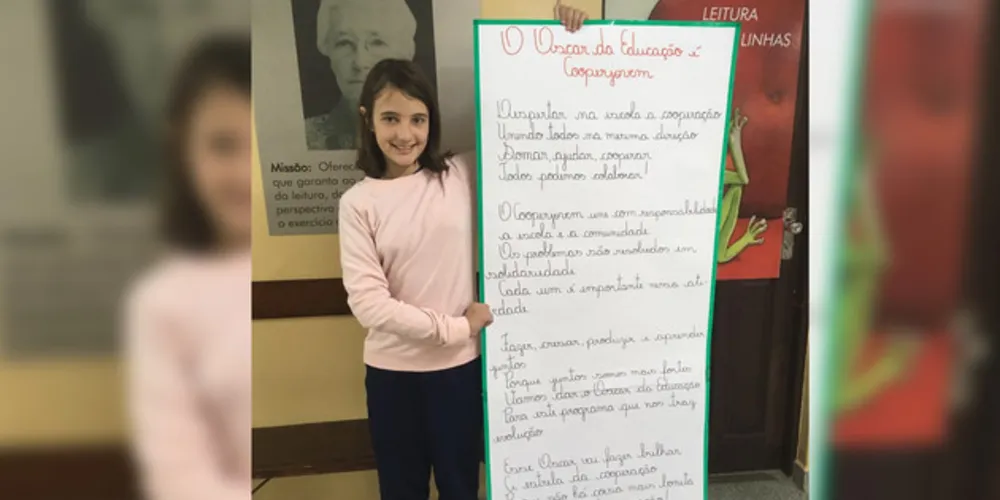 LEITURA
LINHAS
Missão: Oferec
que garanta ao
da leitura, de
perspectiva
o exercício
O Oscar da Educação é
Cooperjovem
Despertar na escola a cooperação
Unindo todos na mesma direção
Somar, ajudar, cooperar
Todos podemos colaborar!
O Cooperjovem une com responsabilidade
a escola e a comunidade
Os problemas são resolvidos em
solidariedade
Cada um é importante nessa ati-
vidade
Fazer, pensar, produzir e aprender
juntos
Porque juntos somos mais fortes
Vamos dar o Oscar da Educação
Para este programa que nos traz
evolução
Esse Oscar vai fazer brilhar
a estrela da cooperação
não há coisa mais bonita